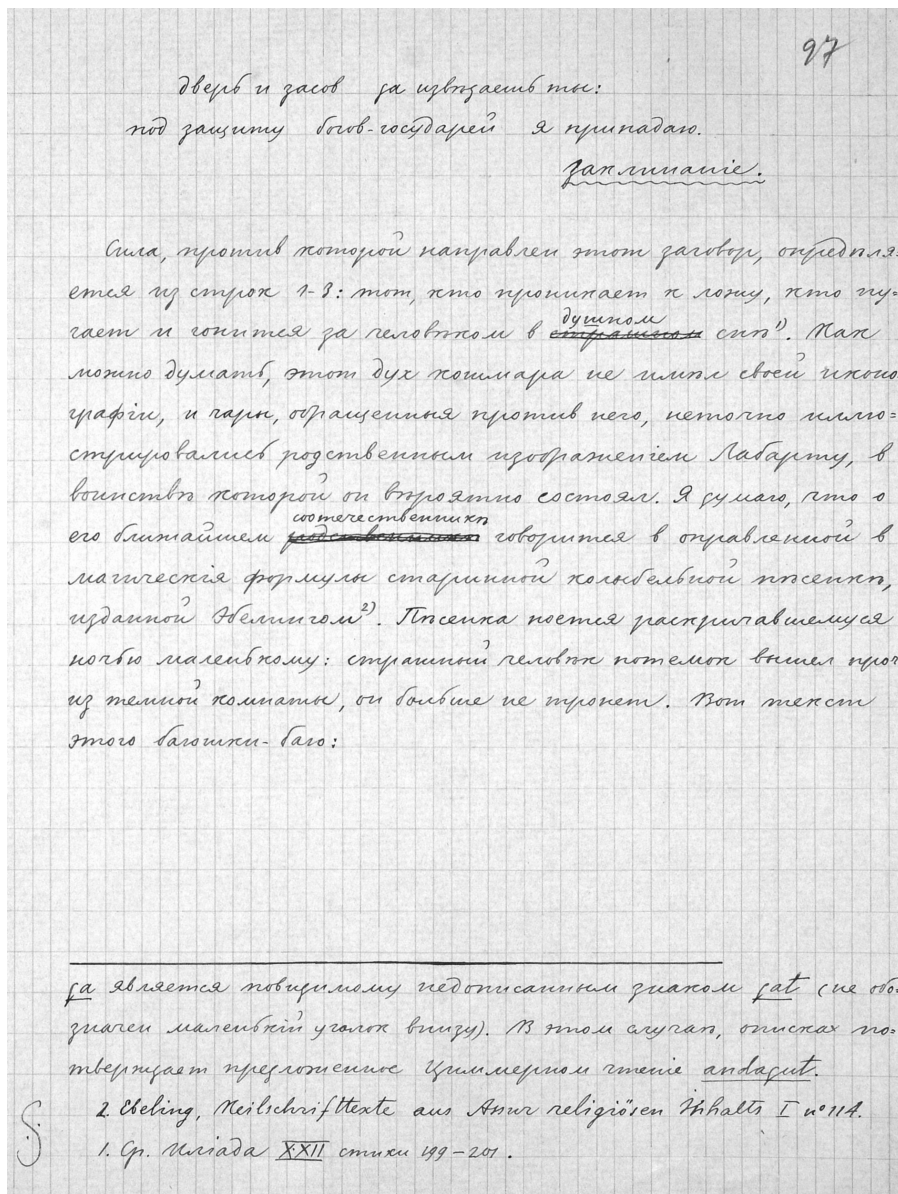 97
дверь и засов да извѣдаешь ты:
под защиту богов-государей я припадаю.
заклинаніе.
Сила, против которой направлен этот заговор, опредѣля-
ется из строк 1-3: тот, кто проникает к ложу, кто пу-
гает и гонится за человѣком в страшном душном снѣ¹⁾. Как
можно думать, этот дух кошмара не имѣл своей иконо
графіи, и чары, обращенныя против него, неточно иллю=
стрировались родственным изображеніем Лабарту, в
воинствѣ которой он вѣроятно состоял. Я думаю, что о
его ближайшем родственникѣ соотечественникѣ говорится в оправленной в
магическія формулы старинной колыбельной пѣсенкѣ,
изданной Эбелингом²⁾. Пѣсенка поется раскричавшемуся
ночью маленькому: страшный человѣк потемок вышел проч
из темной комнаты, он больше не тронет. Вот текст
этого баюшки-баю:
да является повидимому недописанным знаком (не обо
значен маленькій уголок внизу). В этом случаѣ, описка по=
тверждает предложенное Циммерном чтеніе
2. Ebeling, Keilschrifttexte aus Assur religiösen Inhalts I nº 114.
1. Ср. Иліада XXII стихи 199-201.